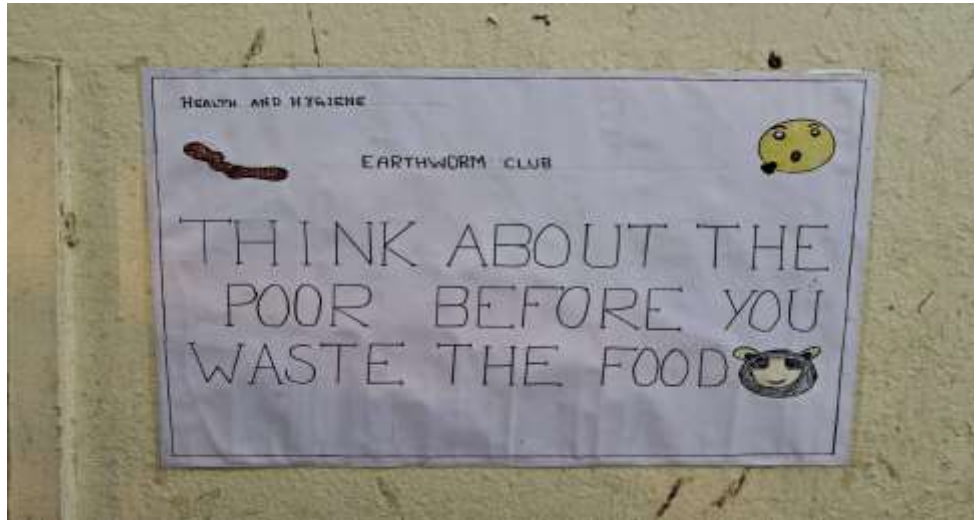 HEALTH AND HYGIENE
EARTHWORM CLUB
THINK ABOUT THE
POOR BEFORE YOU
WASTE THE FOOD